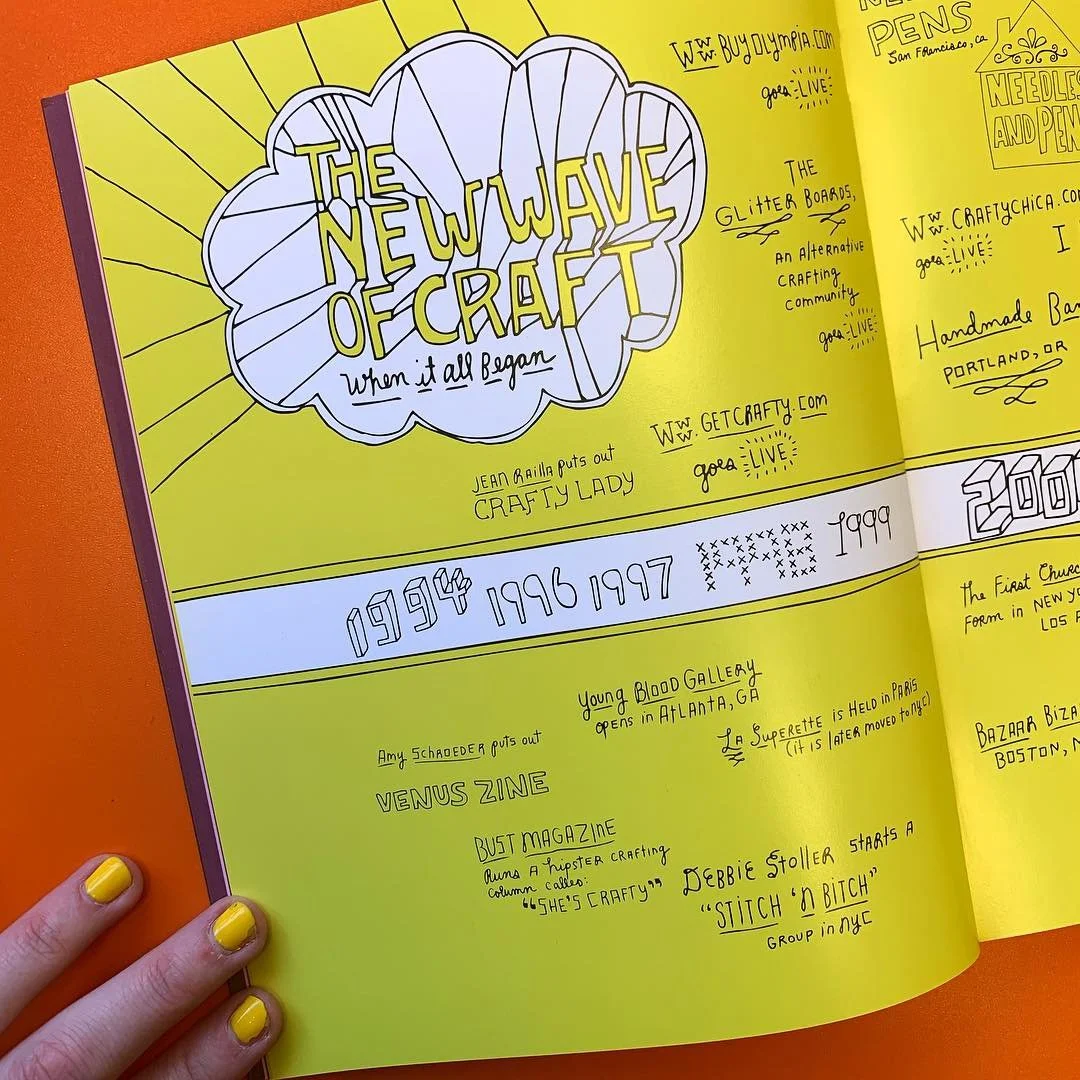 THE
NEW WAVE
OF CRAFT
When it all Began
Www.BUYOLYMPIA.COM
goes LIVE
THE
GLITTER BOARDS,
AN AlterNATIVE
CRAFting
community
goes LIVE
Www.GETCRAFTY.COM
goes LIVE
JEAN RAILLA puts out
CRAFTY LADY
1994 1996 1997 1998 1999
Young Blood Gallery
opens in AtLANTA, GA
LA SUPERETTE is HELD in PARIS
(it is later moved to NYC)
Amy SCHROEDER puts out
VENUS ZINE
BUST MAGAZINE
Runs A hipster CRAFting
Column called:
"SHE'S CRAFTY"
DEBBIE StolleR stARts A
"STITCH 'N BITCH"
GROUP in NYC
PENS
San Francisco, ca
NEEDLES
AND PENS
Www.CRAFTYCHICA.COM
goes LIVE
I
Handmade
PORTLAND, OR
The First
FORM in NEW
LOS
BAZAAR
BOSTON,